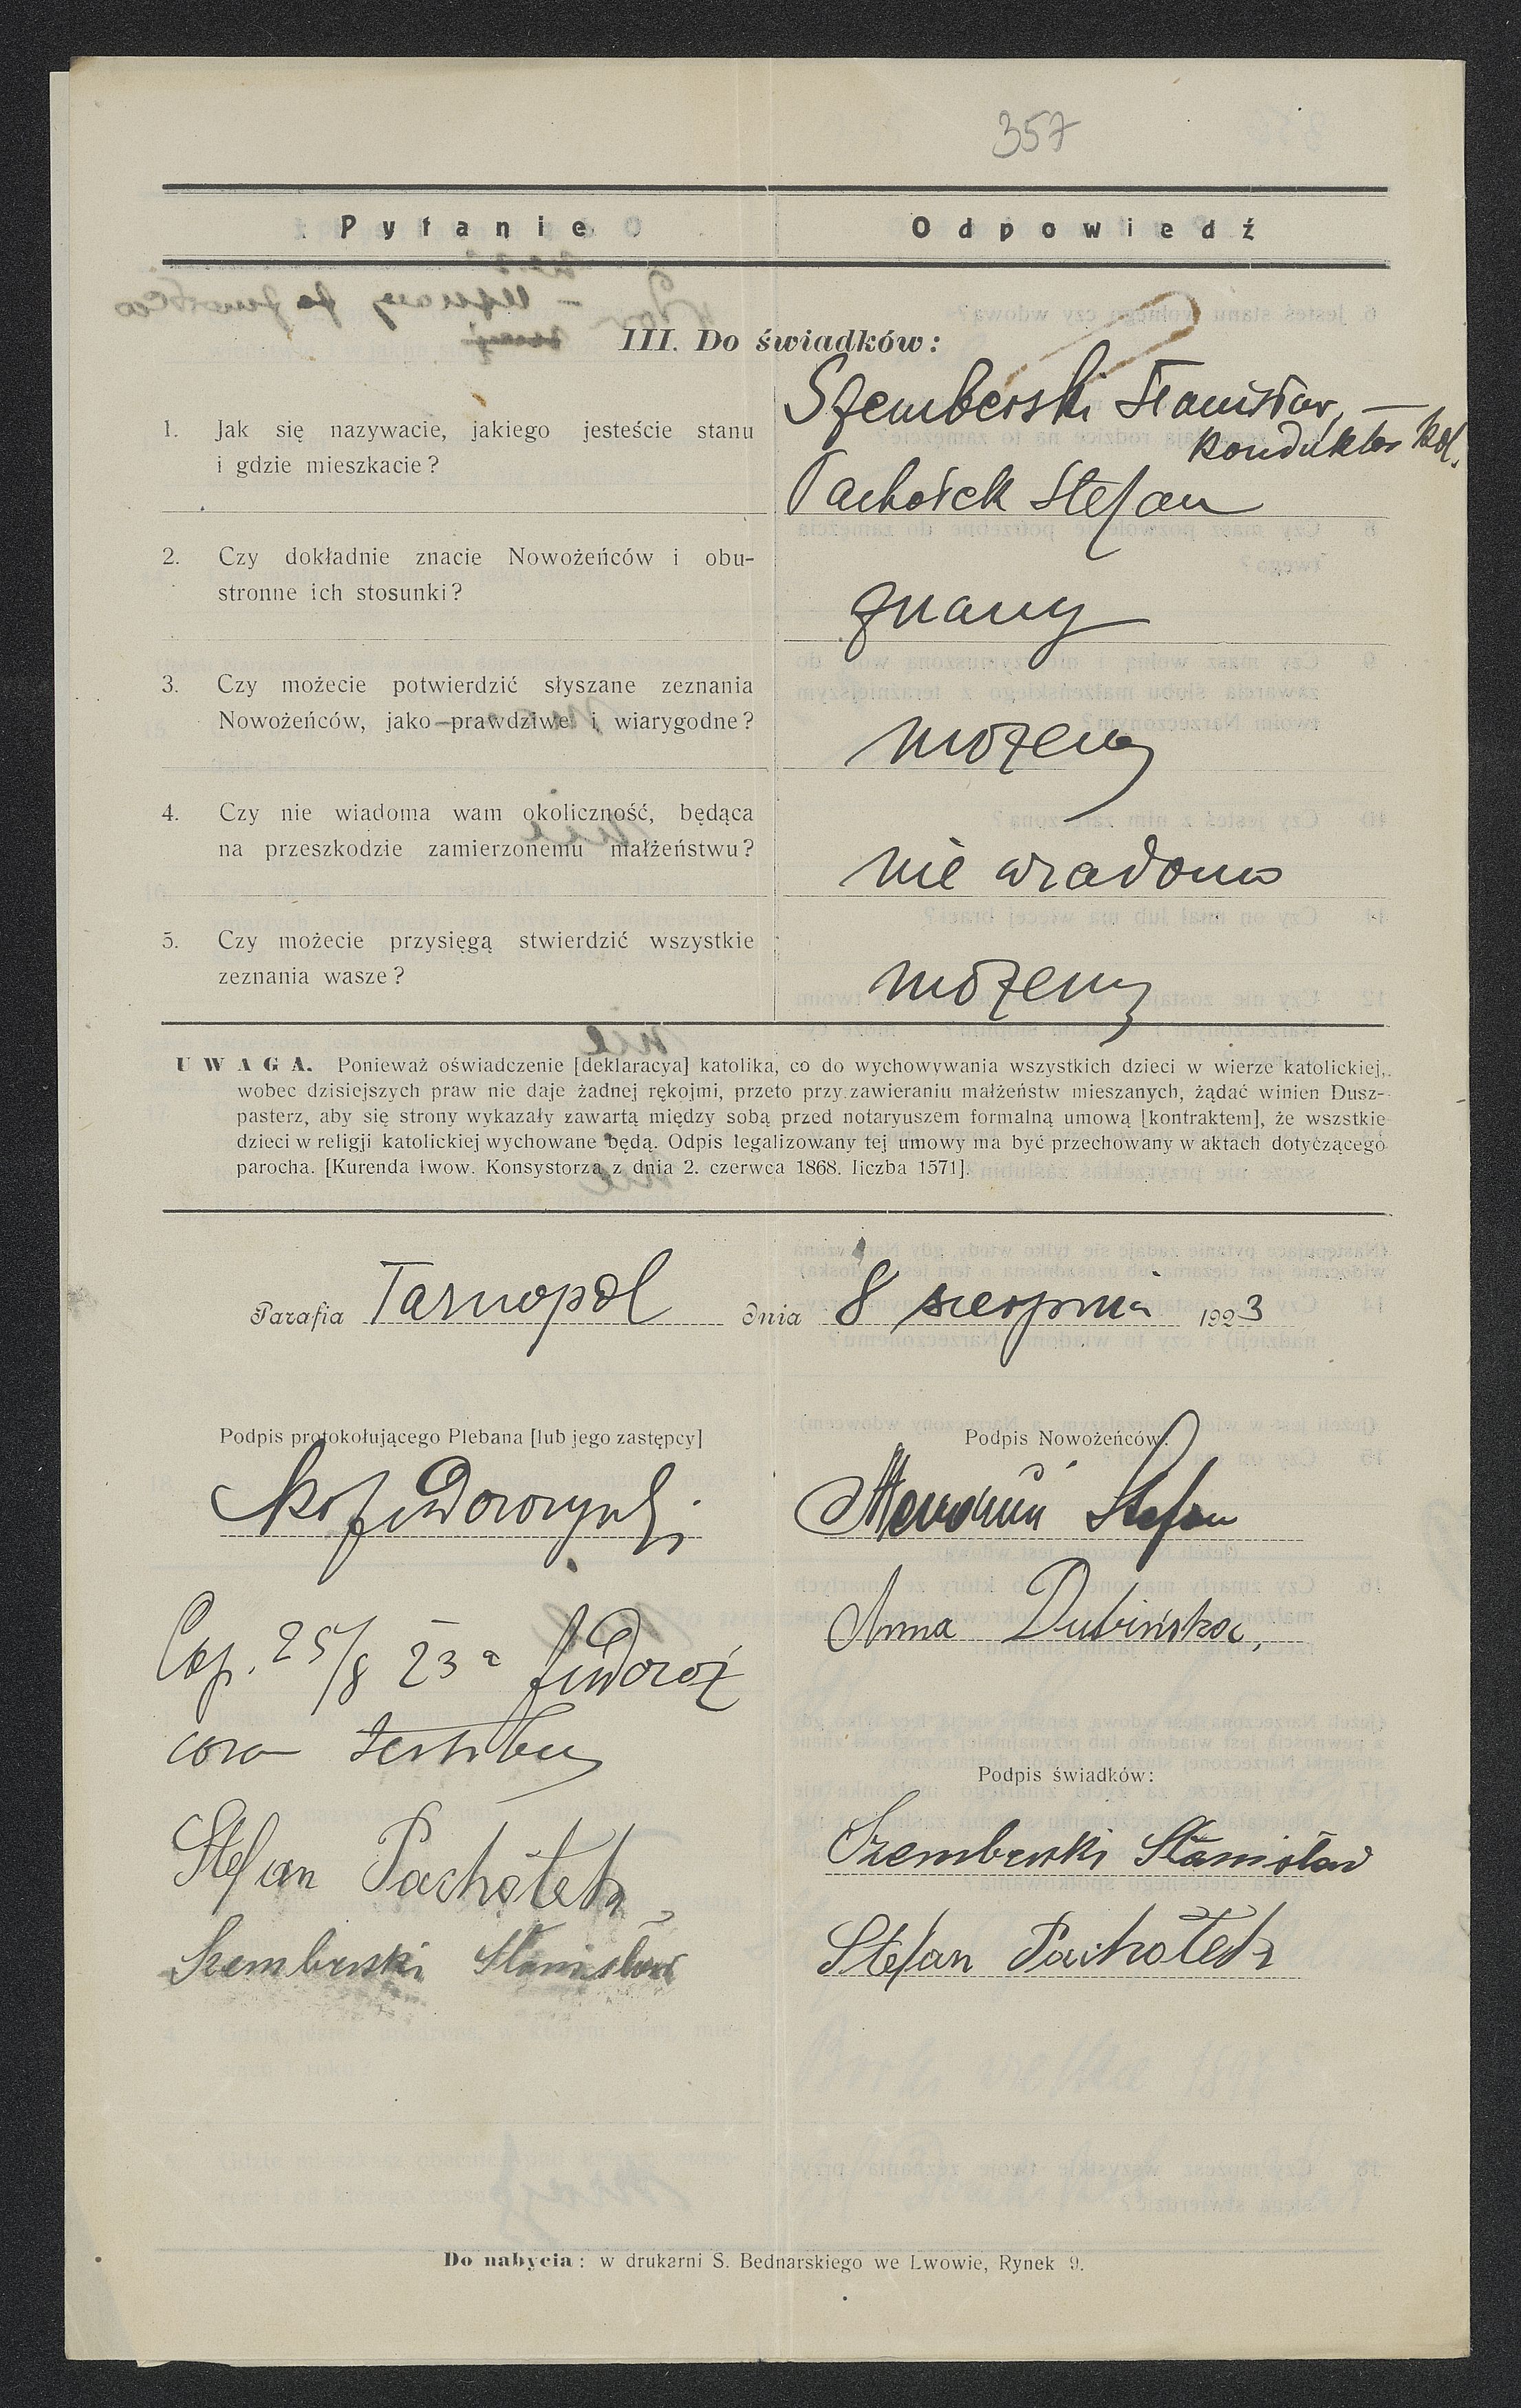 357
Pytanie
Odpowiedź
III. Do świadków:
1. Jak się nazywacie, jakiego jesteście stanu
i gdzie mieszkacie?
Szemberski Stanisław, —
konduktor kol.
Pachołek Stefan
2. Czy dokładnie znacie Nowożeńców i obu-
stronne ich stosunki?
znamy
3. Czy możecie potwierdzić słyszane zeznania
Nowożeńców, jako prawdziwe i wiarygodne?
możemy
4. Czy nie wiadoma wam okoliczność, będąca
na przeszkodzie zamierzonemu małżeństwu?
nie wiadoma
5. Czy możecie przysięgą stwierdzić wszystkie
zeznania wasze?
możemy
UWAGA. Ponieważ oświadczenie [deklaracya] katolika, co do wychowywania wszystkich dzieci w wierze katolickiej,
wobec dzisiejszych praw nie daje żadnej rękojmi, przeto przy zawieraniu małżeństw mieszanych, żądać winien Dusz-
pasterz, aby się strony wykazały zawartą między sobą przed notaryuszem formalną umową [kontraktem], że wszstkie
dzieci w religji katolickiej wychowane będą. Odpis legalizowany tej umowy ma być przechowany w aktach dotyczącego
parocha. [Kurenda lwow. Konsystorza z dnia 2. czerwca 1868. liczba 1571].
Parafia Tarnopol dnia 8 sierpnia 1923
Podpis protokołującego Plebana [lub jego zastępcy]
Podpis Nowożeńców:
Stefan
Anna Dubińska,
Cop. 25/8 23
coram testibus
Podpis świadków:
Stefan Pachołek
Szemberski Stanisław
Szemberski Stanisław
Stefan Pachołek
Do nabycia: w drukarni S. Bednarskiego we Lwowie, Rynek 9.